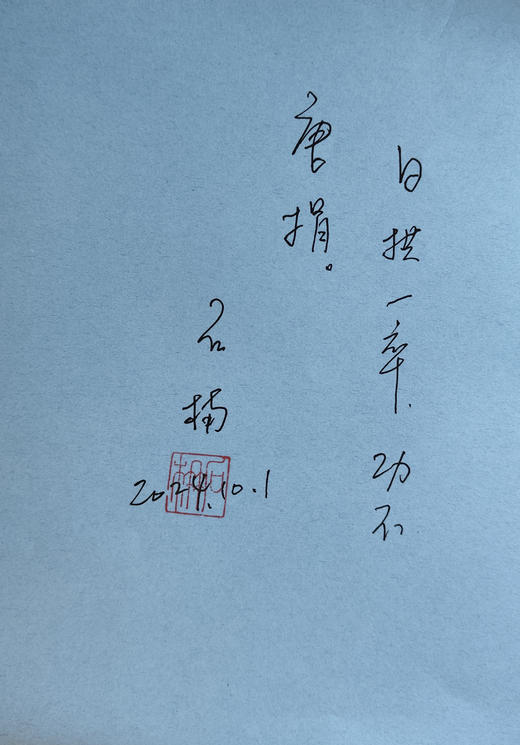 日拱一卒.功不
唐捐。
石楠
2024.10.1